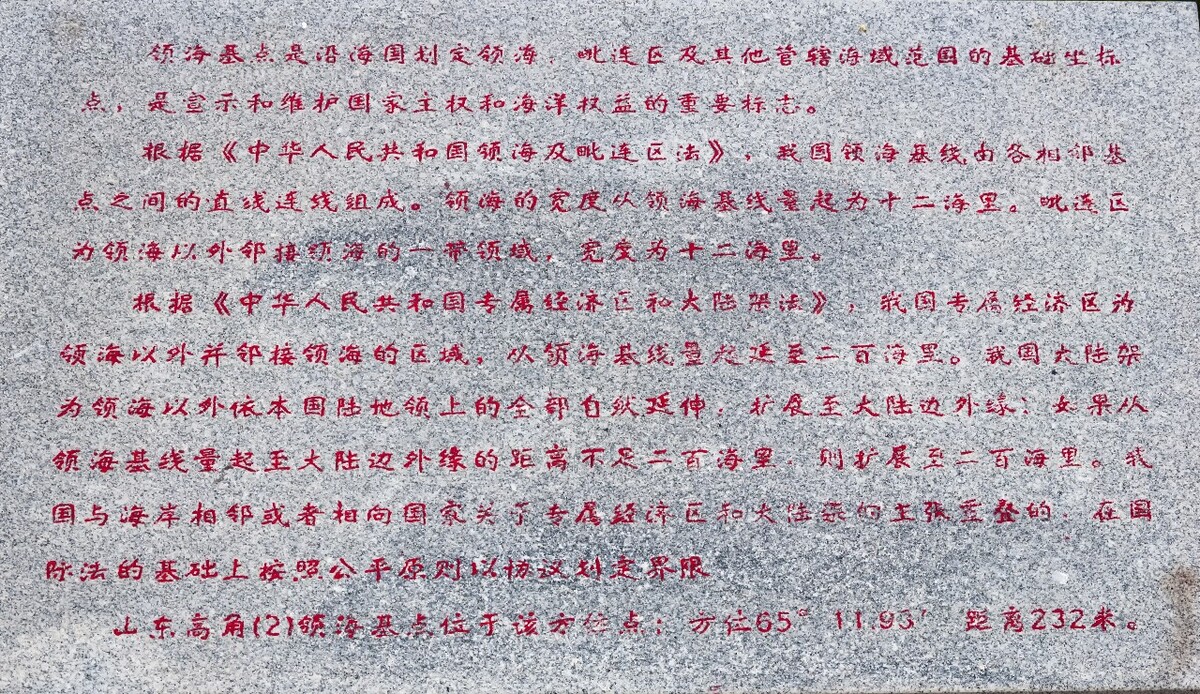 领海基点是沿海国划定领海、毗连区及其他管辖海域范围的基础坐标
点，是宣示和维护国家主权和海洋权益的重要标志。
根据《中华人民共和国领海及毗连区法》，我国领海基线由各相邻基
点之间的直线连线组成。领海的宽度从领海基线量起为十二海里。毗连区
为领海以外邻接领海的一带领域，宽度为十二海里。
根据《中华人民共和国专属经济区和大陆架法》，我国专属经济区为
领海以外并邻接领海的区域，从领海基线量起延至二百海里。我国大陆架
为领海以外依本国陆地领土的全部自然延伸，扩展至大陆边外缘；如果从
领海基线量起至大陆边外缘的距离不足二百海里，则扩展至二百海里。我
国与海岸相邻或者相向国家关于专属经济区和大陆架的主张重叠的，在国
际法的基础上按照公平原则以协议划定界限
山东高角(2)领海基点位于该方位点：方位65° 11.93′ 距离232米。